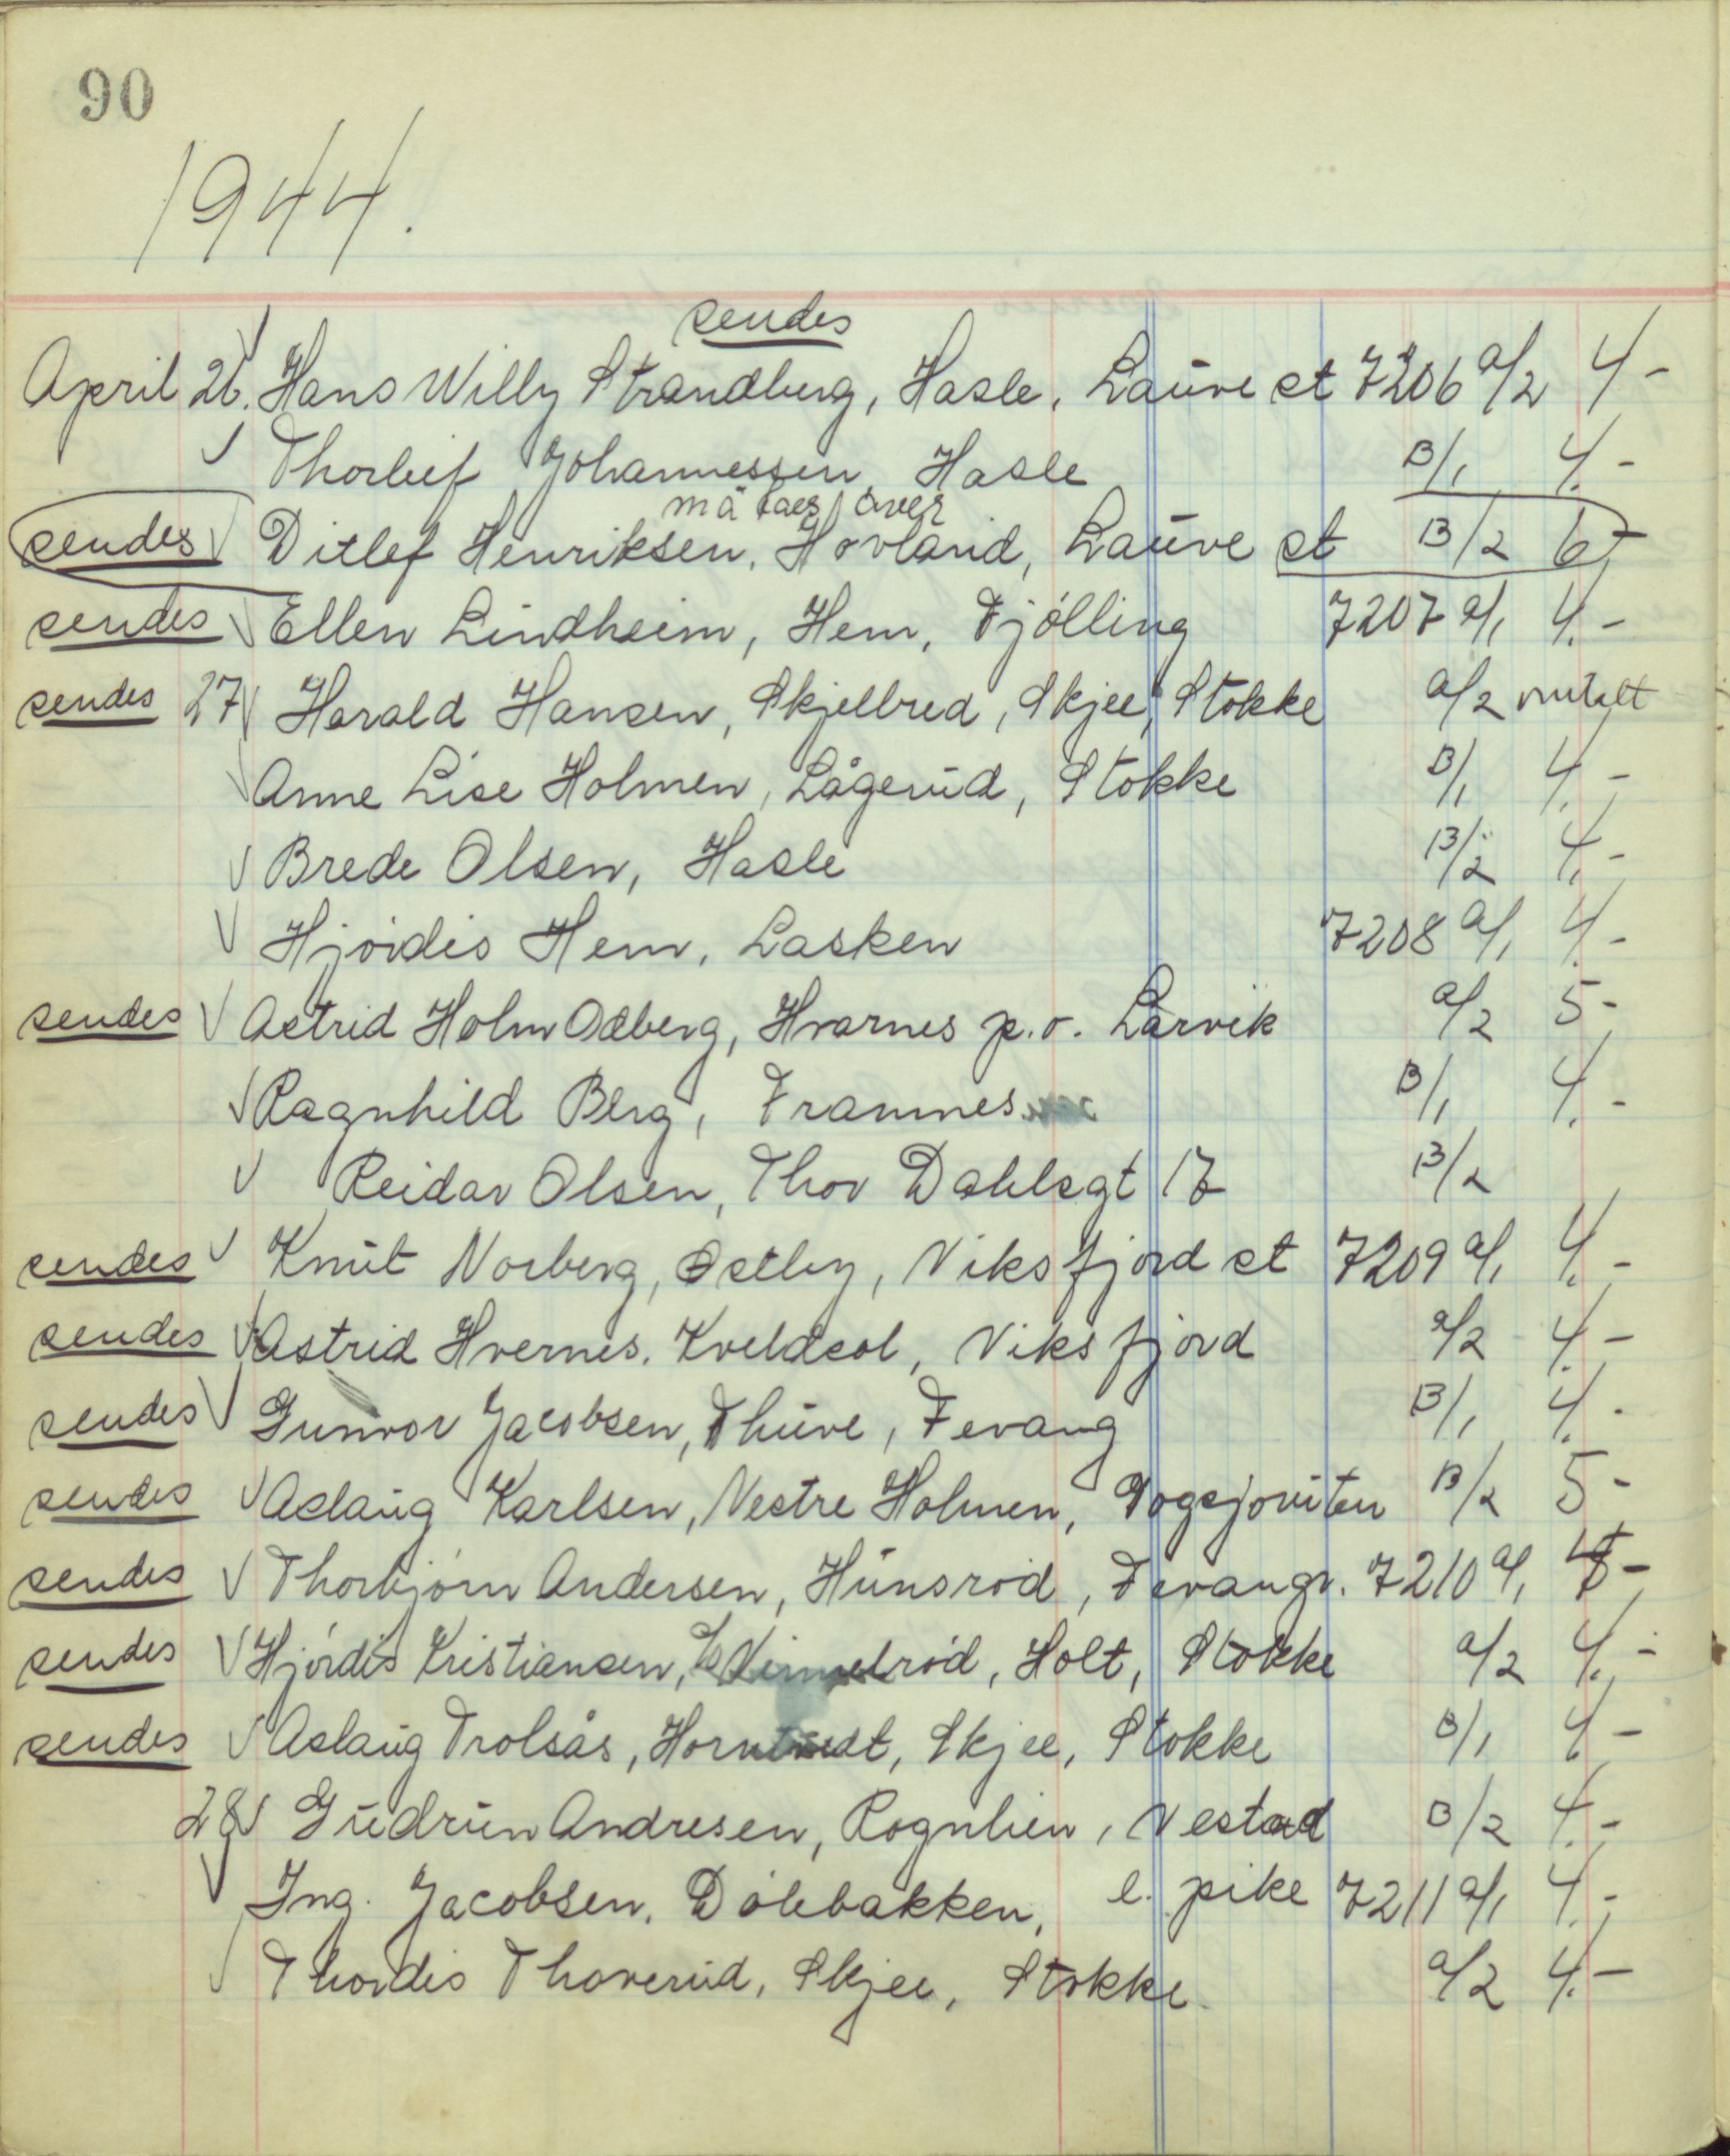 90
1944.
sendes
April 26. Hans Willy Strandberg, Hasle, Lauve st 7206 a/2 4-
Thorleif Johannessen, Hasle B/1 4.-
må taes over
sendes Ditlef Henriksen, Hovland, Lauve st B/2 6-
sendes Ellen Lindheim, Hem, Tjölling 7207 a/1 4.-
sendes 27 Harald Hansen, Skjelbred, Skjee, Stokke a/2
Anne Lise Holmen, Lågerud, Stokke B/1 4.-
Brede Olsen, Hasle B/2 4.-
Hjördis Hem, Lasken 7208 a/1 4.-
sendes Astrid Holm Odberg, Hvarnes p.o. Larvik a/2 5-
Ragnhild Berg, Framnes B/1 4.-
Reidar Olsen, Thor Dahlsgt 17 B/2
sendes Knut Norberg, Östby, Viksfjord st 7209 a/1 4.-
sendes Astrid Hvernes. Kveldsol, Viksfjord a/2 4.-
sendes Gunvor Jacobsen, Thuve, Fevang B/1 4.-
sendes Aslaug Karlsen, Vestre Holmen, B/2 5-
sendes Thorbjörn Andersen, Hunsröd, Fevang. 7210 a/1
sendes Hjördis Kristiansen, Holt, Stokke a/2 4.-
sendes Aslaug Trolsås, Skjee, Stokke B/1 4-
28 Gudrun Andresen, Rognlien, Vestad B/2 4.-
Ing. Jacobsen, Dölebakken, l. pike 7211 a/1 4.-
Thordis Thorerud, Skjee, Stokke a/2 4.-